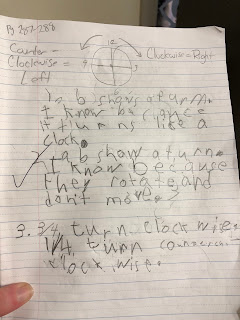 Pg 287-288
Counter-
Clockwise =
Left
12
9
3
Clockwise=Right
1a, b shows a turn.
I know becaus
it turns like a
clock.
2 a, b show a turn.
I know because
they rotate and
don't move
3. 3/4 turn clockwise.
1/4 turn
clock wise.